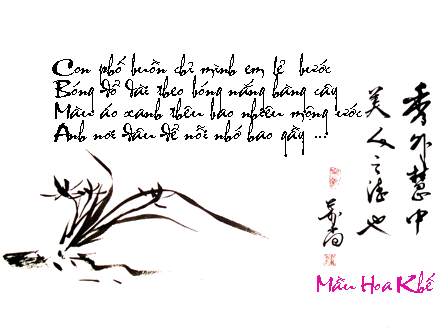 Con phố buồn chỉ mình em lẻ bước
Bóng đổ dài theo bóng nắng hàng cây
Màu áo xanh thêu bao nhiêu mộng ước
Anh nơi đâu để nỗi nhớ bao gầy ...
秀外慧中
美人之法也
Mầu Hoa Khế